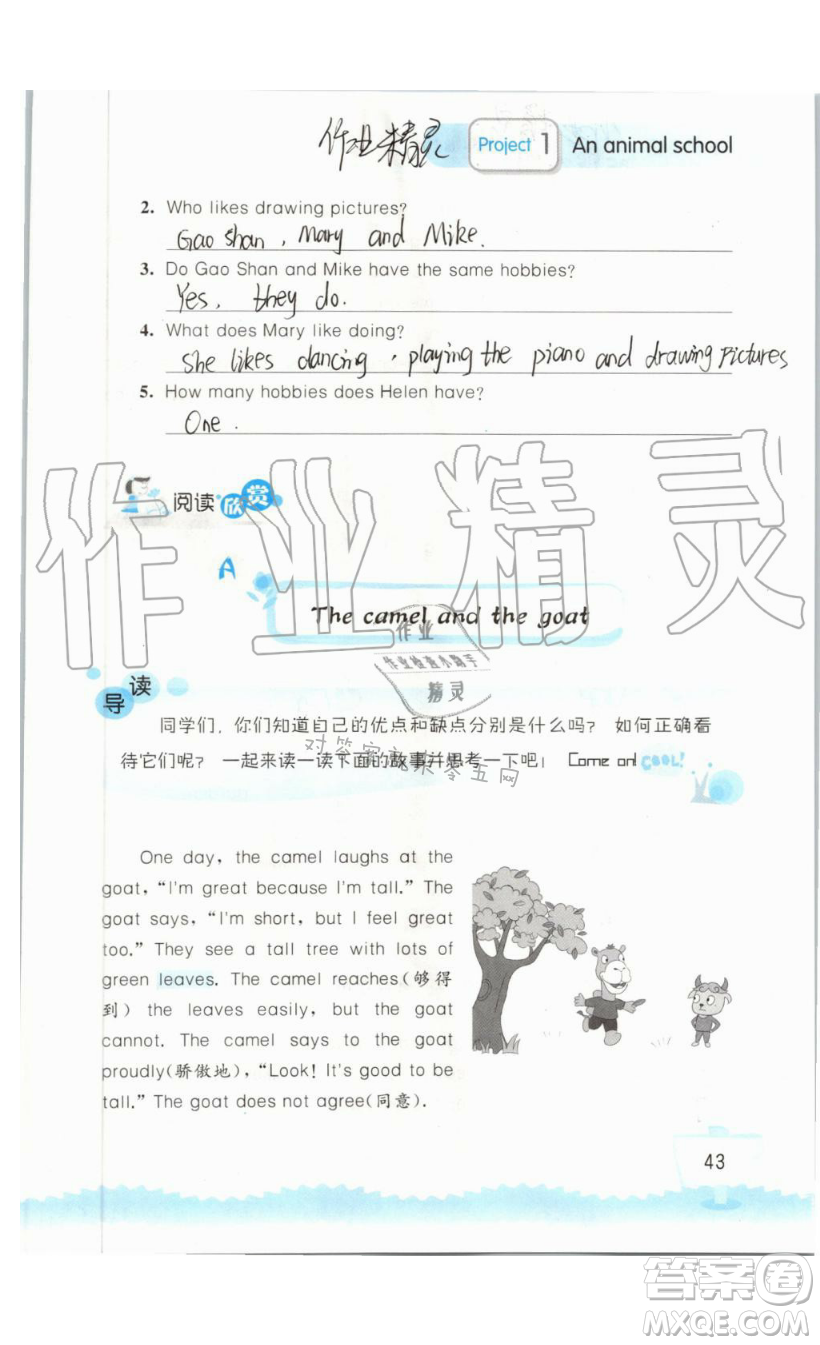 作业精灵
Project 1 An animal school
2. Who likes drawing pictures?
Gao Shan, Mary and Mike.
3. Do Gao Shan and Mike have the same hobbies?
Yes, they do.
4. What does Mary like doing?
She likes dancing, playing the piano and drawing Pictures
5. How many hobbies does Helen have?
One.
阅读欣赏
作业精灵
A
The camel and the goat
作业
作业检查小助手
精灵
导读
同学们，你们知道自己的优点和缺点分别是什么吗？ 如何正确看
待它们呢？ 一起来读一读下面的故事并思考一下吧！ Come on! COOL!
对答案就来零五网
One day, the camel laughs at the
goat, “I'm great because I'm tall.” The
goat says, “I'm short, but I feel great
too.” They see a tall tree with lots of
green leaves. The camel reaches(够得
到) the leaves easily, but the goat
cannot. The camel says to the goat
proudly(骄傲地), “Look! It's good to be
tall.” The goat does not agree(同意).
43
答案卷
MXQE.COM